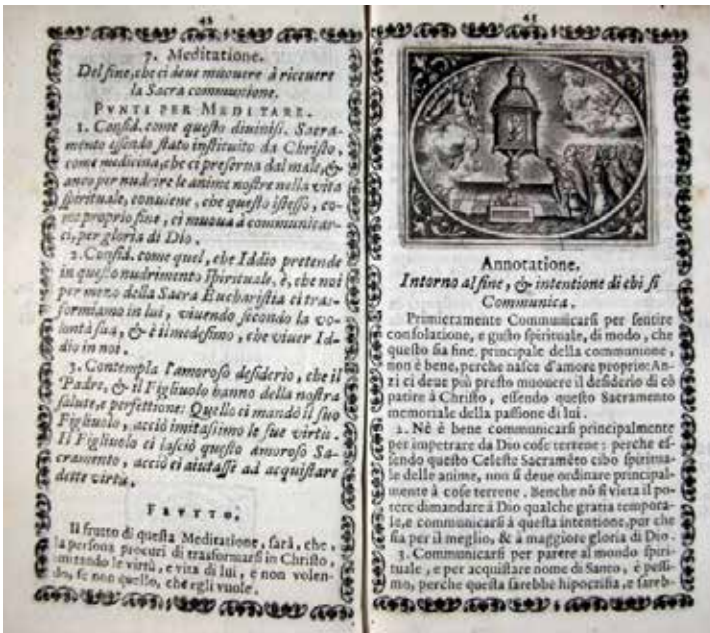 42
7. Meditatione.
Del fine, che ci deue muouere à riceuere
la Sacra communione.
PVNTI PER MEDITARE.
1. Consid. come questo diuiniss. Sacra-
mento essendo stato instituito da Christo,
come medicina, che ci preserua dal male, &
anco per nudrire le anime nostre nella vita
spirituale, conuiene, che questo istesso, co-
me proprio fine, ci muoua à communicar-
ci, per gloria di Dio.
2. Consid. come quel, che Iddio pretende
in questo nudrimento spirituale, è, che noi
per mezo della Sacra Eucharistia ci tras-
formiamo in lui, viuendo secondo la vo-
lontà sua, & è il medesimo, che viuer Id-
dio in noi.
3. Contempla l'amoroso desiderio, che il
Padre, & il Figliuolo hanno della nostra
salute, e perfettione: Quello ci mandò il suo
Figliuolo, acciò imitassimo le sue virtù.
Il Figliuolo ci lasciò questo amoroso Sa-
cramento, acciò ci aiutasse ad acquistare
dette virtù.
FRVTTO.
Il frutto di questa Meditatione, sarà, che
la persona procuri di trasformarsi in Christo,
imitando le virtù, e vita di lui, e non volen-
do, se non quello, che egli vuole.
43
Annotatione.
Intorno al fine, & intentione di chi si
Communica.
Primieramente Communicarsi per sentire
consolatione, e gusto spirituale, di modo, che
questo sia fine principale della communione,
non è bene, perche nasce d'amore proprio: An-
zi ci deue più presto muouere il desiderio di cō
patire à Christo, essendo questo Sacramento
memoriale della passione di lui.
2. Nè è bene communicarsi principalmente
per impetrare da Dio cose terrene: perche es-
sendo questo Celeste Sacramēto cibo spiritua-
le delle anime, non si deue ordinare principal-
mente à cose terrene. Benche nō si vieta il po-
tere dimandare à Dio qualche gratia tempora-
le, e communicarsi à questa intentione, pur che
sia per il meglio, & à maggiore gloria di Dio.
3. Communicarsi per parere al mondo spiri-
tuale, e per acquistare nome di Santo, è pessi-
mo, perche questa sarebbe hipocrisia, e sareb-